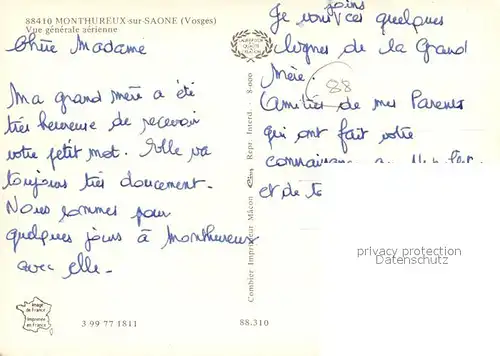 88410 MONTHUREUX-sur-SAONE (Vosges)
Vue générale aérienne
Chère Madame
Ma grand mère a été
très heureuse de recevoir
votre petit mot. Elle va
toujours très doucement.
Nous sommes pour
quelques jours à Monthureux
avec elle.
Je vous joins ces quelques
lignes de la Grand
Mère.
88
Amitiés de mes Parents
qui ont fait votre
et de
Combier Imprimeur Mâcon Cim Repr. Interd. S 000
privacy protection
Datenschutz
Image
de France
Imprimée
en France
3 99 77 1811
88.310